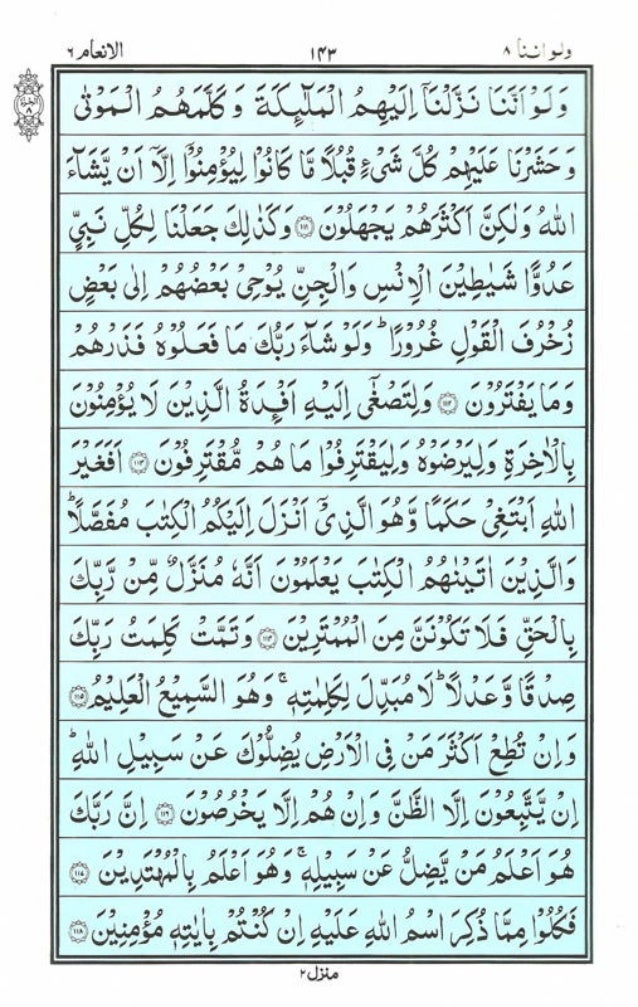 ولواننا ٨ ١٤٣ الانعام ٦
الجزء ٨
وَلَوْ اَنَّنَا نَزَّلْنَاۤ اِلَيْهِمُ الْمَلٰٓئِكَةَ وَكَلَّمَهُمُ الْمَوْتٰى
وَحَشَرْنَا عَلَيْهِمْ كُلَّ شَیْءٍ قُبُلًا مَّا كَانُوْا لِيُؤْمِنُوْۤا اِلَّاۤ اَنْ يَّشَآءَ
اللّٰهُ وَلٰكِنَّ اَكْثَرَهُمْ يَجْهَلُوْنَ ۝١١١ وَكَذٰلِكَ جَعَلْنَا لِكُلِّ نَبِیٍّ
عَدُوًّا شَيٰطِيْنَ الْاِنْسِ وَالْجِنِّ يُوْحِیْ بَعْضُهُمْ اِلٰى بَعْضٍ
زُخْرُفَ الْقَوْلِ غُرُوْرًا ؕ وَلَوْ شَآءَ رَبُّكَ مَا فَعَلُوْهُ فَذَرْهُمْ
وَمَا يَفْتَرُوْنَ ۝١١٢ وَلِتَصْغٰۤى اِلَيْهِ اَفْـِٕدَةُ الَّذِيْنَ لَا يُؤْمِنُوْنَ
بِالْاٰخِرَةِ وَلِيَرْضَوْهُ وَلِيَقْتَرِفُوْا مَا هُمْ مُّقْتَرِفُوْنَ ۝١١٣ اَفَغَيْرَ
اللّٰهِ اَبْتَغِیْ حَكَمًا وَّهُوَ الَّذِیْۤ اَنْزَلَ اِلَيْكُمُ الْكِتٰبَ مُفَصَّلًا ؕ
وَالَّذِيْنَ اٰتَيْنٰهُمُ الْكِتٰبَ يَعْلَمُوْنَ اَنَّهٗ مُنَزَّلٌ مِّنْ رَّبِّكَ
بِالْحَقِّ فَلَا تَكُوْنَنَّ مِنَ الْمُمْتَرِيْنَ ۝١١٤ وَتَمَّتْ كَلِمَتُ رَبِّكَ
صِدْقًا وَّعَدْلًا ؕ لَا مُبَدِّلَ لِكَلِمٰتِهٖ ۚ وَهُوَ السَّمِيْعُ الْعَلِيْمُ ۝١١٥
وَاِنْ تُطِعْ اَكْثَرَ مَنْ فِی الْاَرْضِ يُضِلُّوْكَ عَنْ سَبِيْلِ اللّٰهِ ؕ
اِنْ يَّتَّبِعُوْنَ اِلَّا الظَّنَّ وَاِنْ هُمْ اِلَّا يَخْرُصُوْنَ ۝١١٦ اِنَّ رَبَّكَ
هُوَ اَعْلَمُ مَنْ يَّضِلُّ عَنْ سَبِيْلِهٖ ۚ وَهُوَ اَعْلَمُ بِالْمُهْتَدِيْنَ ۝١١٧
فَكُلُوْا مِمَّا ذُكِرَ اسْمُ اللّٰهِ عَلَيْهِ اِنْ كُنْتُمْ بِاٰيٰتِهٖ مُؤْمِنِيْنَ ۝١١٨
منزل ٢